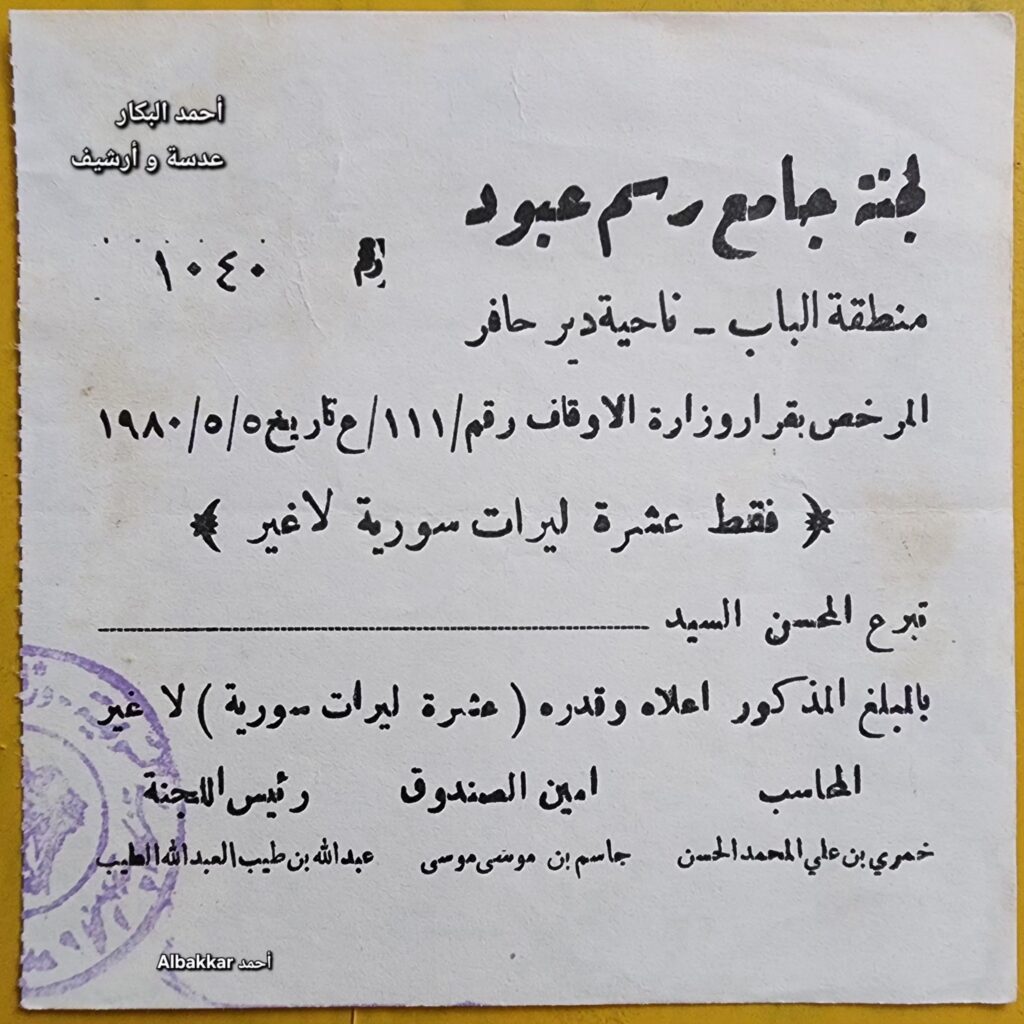 أحمد البكار
عدسة و أرشيف
لجنة جامع رسم عبود
رقم ١٠٤٠
منطقة الباب - ناحية دير حافر
المرخص بقرار وزارة الاوقاف رقم /١١١/ع تاريخ ١٩٨٠/٥/٥
﴿ فقط عشرة ليرات سورية لاغير ﴾
تبرع المحسن السيد
بالمبلغ المذكور اعلاه وقدره ( عشرة ليرات سورية ) لا غير
المحاسب امين الصندوق رئيس اللجنة
خمري بن علي المحمد الحسن جاسم بن موسى موسى عبدالله بن طيب العبدالله الطيب
أحمد Albakkar